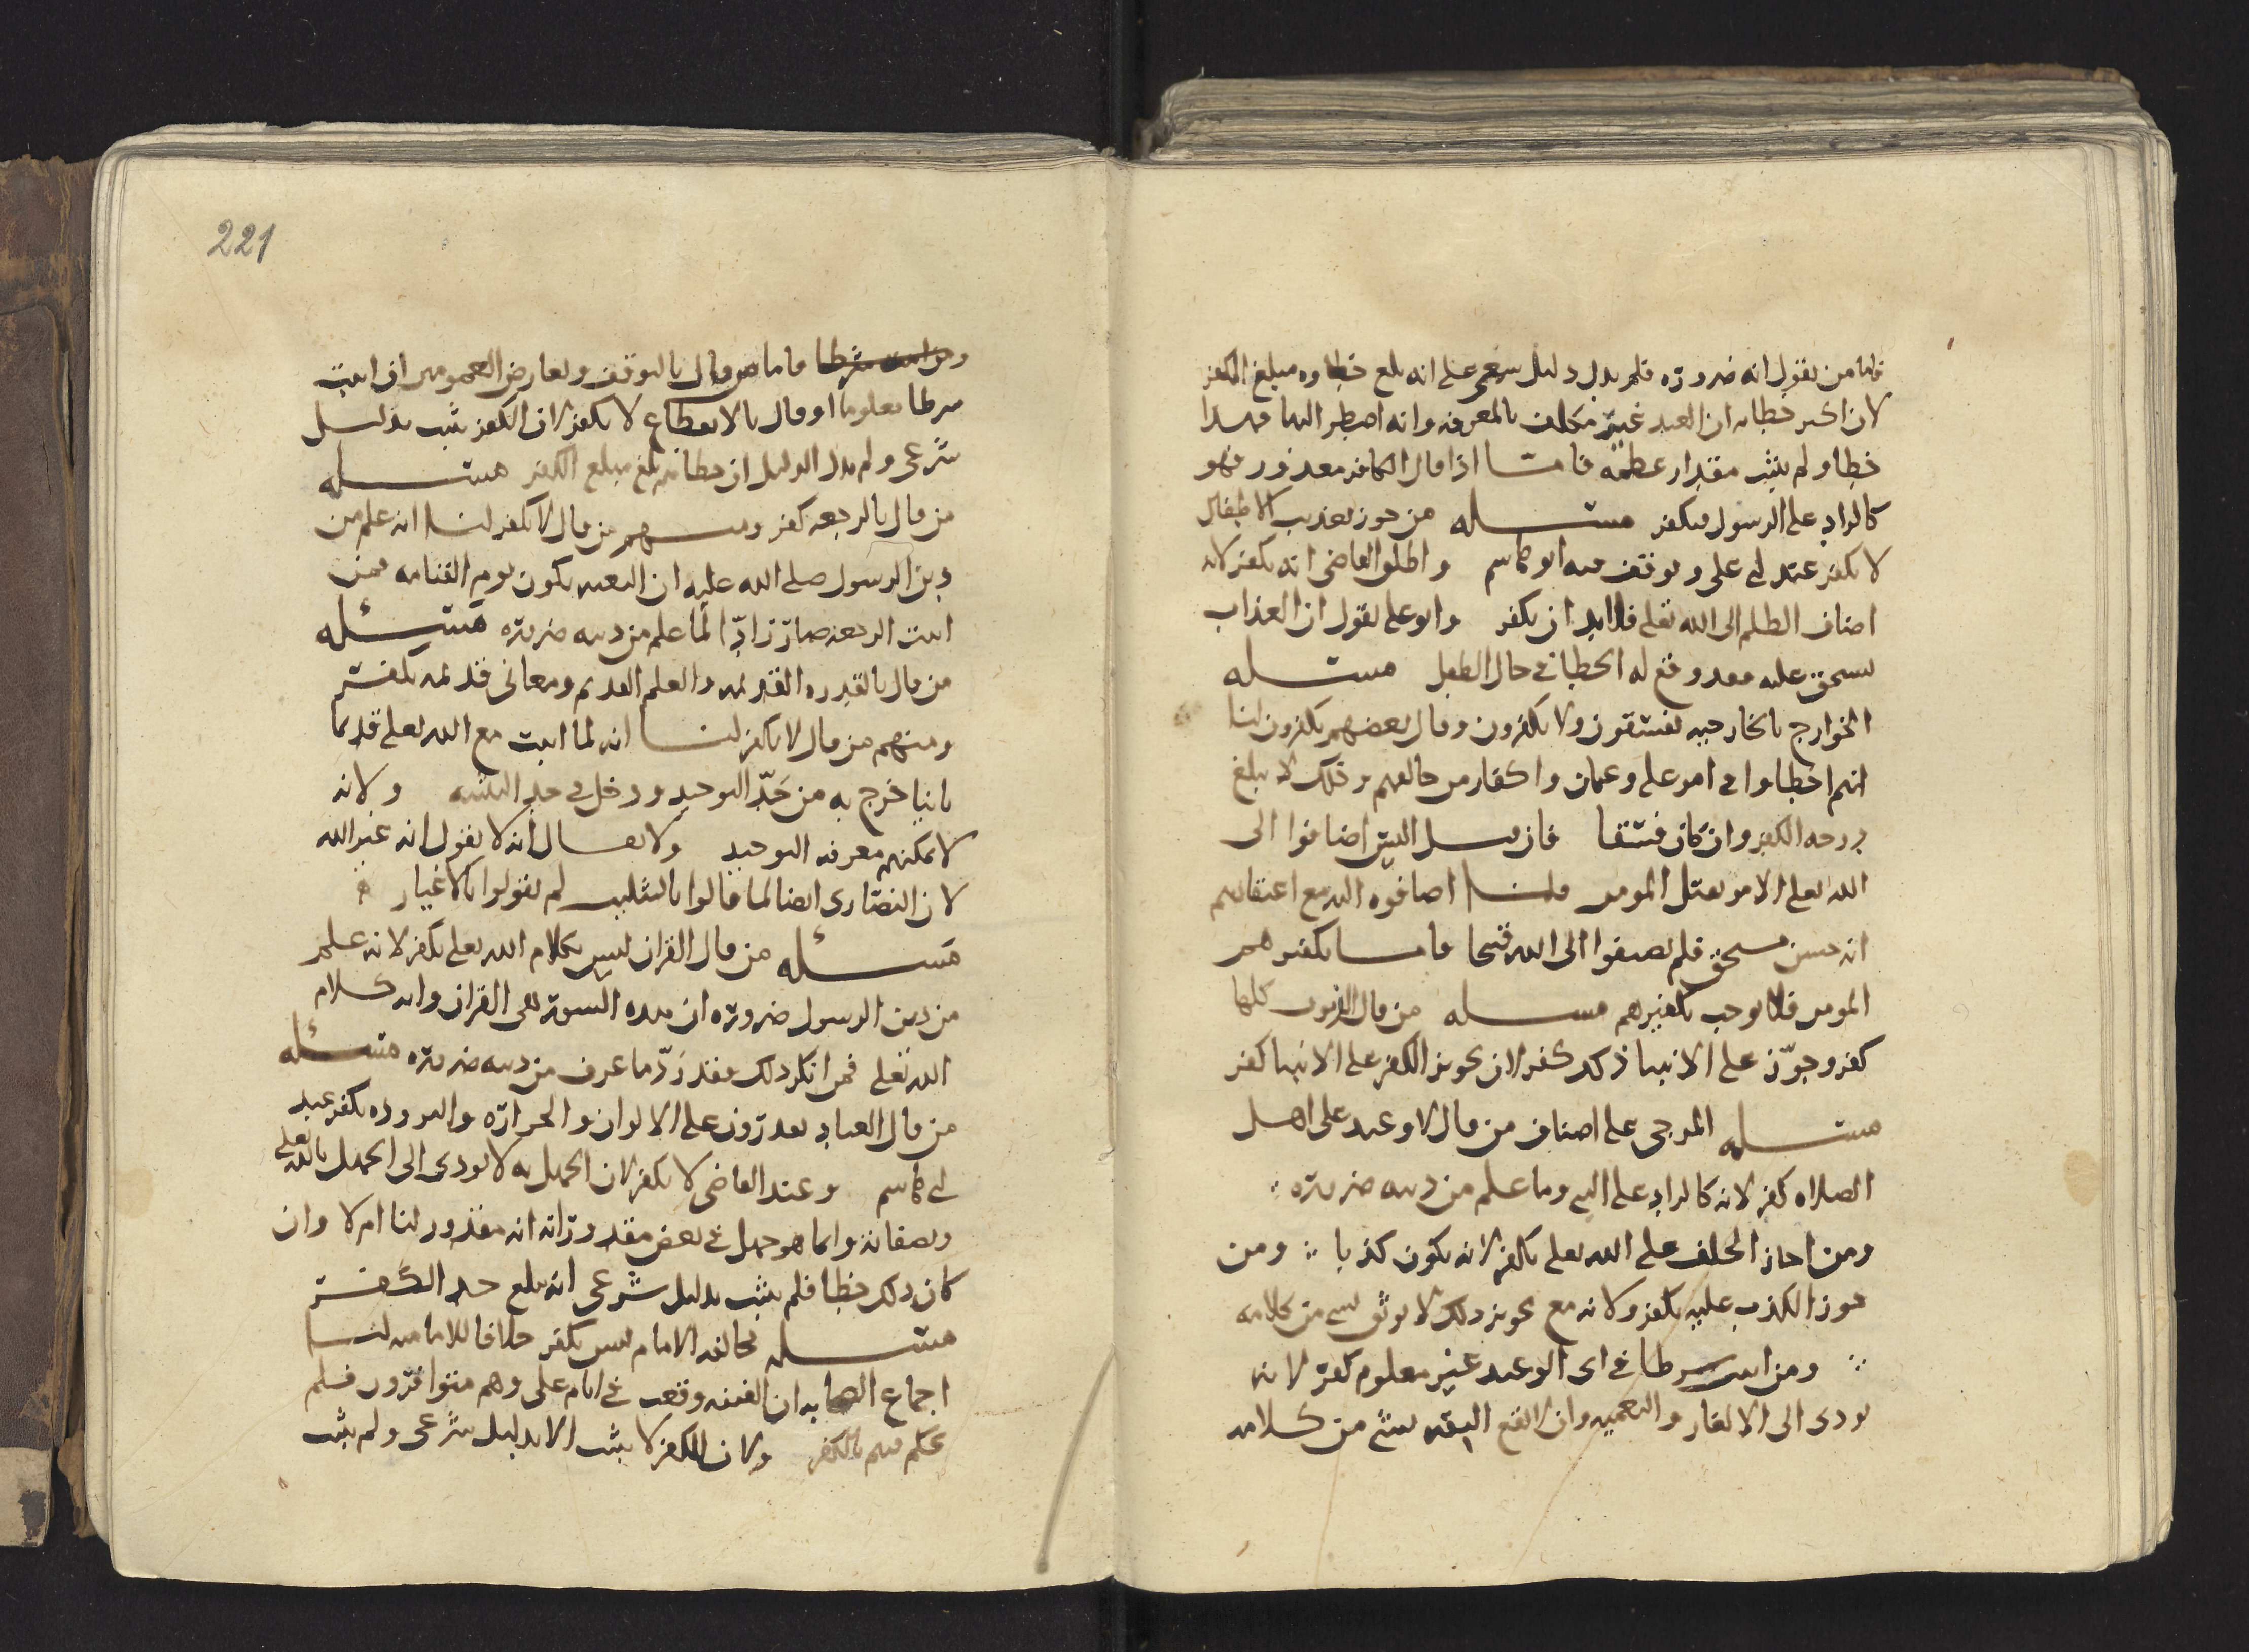 فاما من يقول انه ضرورة فلم يدل دليل سمعي على انه بلغ خطاوه مبلغ الكفر
لان اكبر خطايه ان العبد غير مكلف بالمعرفه وانه اضطر اليها فهذا
خطا ولم يثبت مقدار عظمه فامـا اذا قال الكافر معذور فهو
كالراد على الرسول فيكفر مسـله من جوز تعذيب الاطفال
لا يكفر عند ابي علي وتوقف فيه ابو هاشم واطلق القاضي انه يكفر لانه
اضاف الظلم الى الله تعلى فلا بد ان يكفر وابو علي يقول ان العذاب
يستحق عليه فقد وقع له الخطا في حال الطفل مسـله
الخوارج بالخارجيه يفسقون ولا يكفرون وقال بعضهم يكفرون لنا
انهم اخطاوا في امر علي وعثمان واكفار من خالفهم وذلك لا يبلغ
درجه الكفر وان كان فسقا فان قيل اليس اضافوا الى
الله تعلى الامر بقتل المومن قلنـا اضافوه اليه مع اعتقادهم
انه حسن مستحق فلم يضيفوا الى الله قبيحا فامـا تكفيرهم
المومن فلا يوجب تكفيرهم مسـله من قال الذنوب كلها
كفر وجوّز على الانبيا ذلك كفر لان تجويز الكفر على الانبيا كفر
مسـله المرجي على اصناف من قال لا وعيد على اهل
الصلاه كفر لانه كالراد على النبي وما علم من دينه ضرورة
ومن اجاز الخلف على الله تعلى يكفر لانه يكون كذبا ومن
جوز الكذب عليه يكفر ولانه مع تجويز ذلك لا يوثق بشي من كلامه
ومن اثبت شرطا في اي الوعيد غير معلوم كفر لانه
يودي الى الالغاز والتعميه وان لا تقع الثقه بشي من كلامه
221
فاما من قال بالتوقف وتعارض العمومين ان اثبت
شرطا معلوما او قال بالانقطاع لا يكفر لان الكفر يثبت بدليل
شرعي ولم يدل الدليل ان خطاهم بلغ مبلغ الكفر مسـله
من قال بالرجعه كفر ومنـهم من قال لا يكفر لنـا انه علم من
دين الرسول صلى الله عليه ان البعث يكون يوم القيامه فمن
اثبت الرجعه صار رادّا لما علم من دينه ضرورة مسئـله
من قال بالقدره القديمه والعلم القديم ومعاني قديمه يكفر
ومنهم من قال لا يكفر لنـا انه لما اثبت مع الله تعلى قديما
ثانيا خرج به من حَدّ التوحيد ودخل في حد التثنيه ولانه
لا يمكنهم معرفه التوحيد ولا يقـال انه لا يقول انه غير الله
لان النصارى ايضا لما قالوا بالتثليث لم يقولوا بالاغيار
مسئـله من قال القران ليس بكلام الله تعلى يكفر لانه علم
من دين الرسول ضرورة ان هذه السور هي القران وانه كلام
الله تعلى فمن انكر ذلك فقد رَدّ ما عرف من دينه ضرورة مسئـله
من قال العباد يقدرون على الالوان والحرارة والبروده يكفر عند
ابي هاشم وعند القاضي لا يكفر لان الجهل به لا يودي الى الجهل بالله تعلى
وبصفاته وانما هو جهل في بعض مقدوراته انه مقدور لنا ام لا وان
كان ذلك خطا فلم يثبت بدليل شرعي انه بلغ حد الكفر
مسـله مخالفه الامام ليس بكفر خلافا للاماميه لنـا
اجماع الصحابه ان الفتنه وقعت في ايام علي وهم متوافرون فلم
يحكم فيهم بالكفر ولان الكفر لا يثبت الا بدليل شرعي ولم يثبت